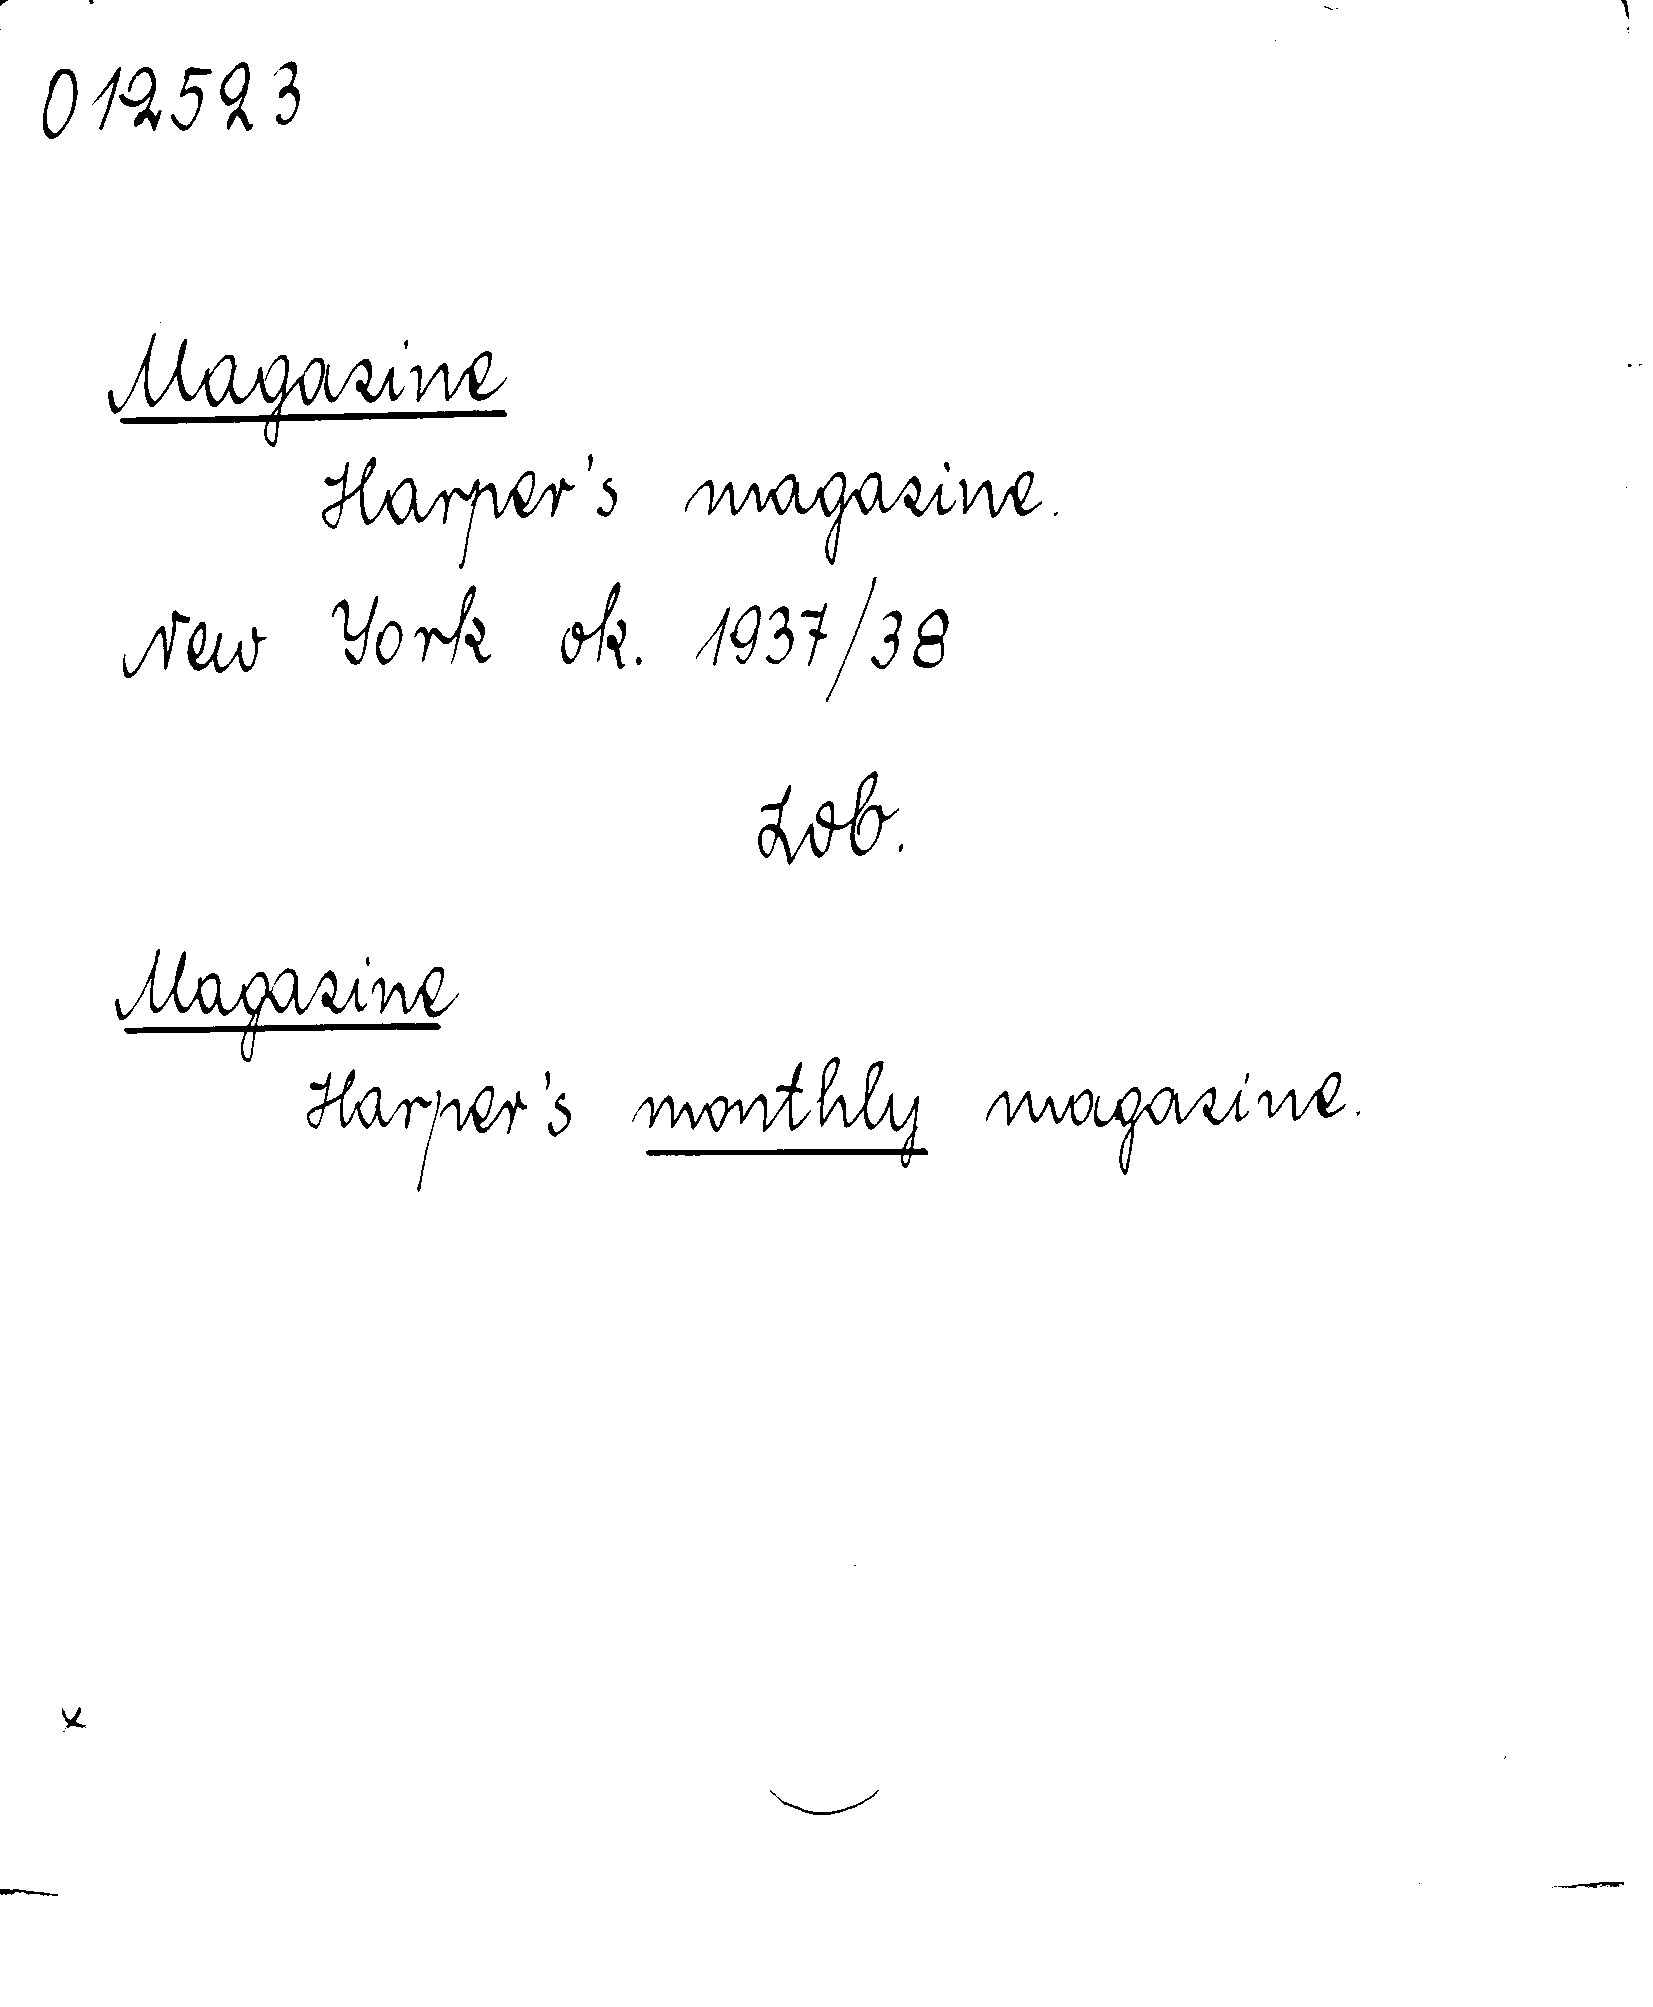 012523
Magazine
Harper's magazine.
New York ok. 1937/38
Zob.
Magazine
Harper's monthly magazine.
x